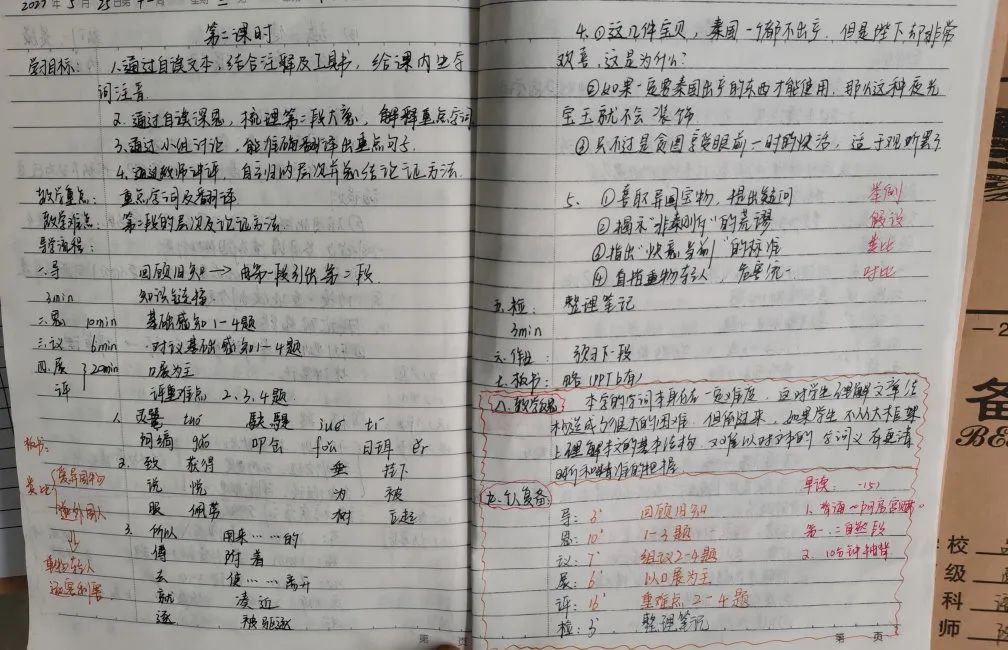 2023年5月25日 第十一周 星期三
第二课时
学习目标: 1.通过自读文本,结合注解及工具书,给课内生字
词注音.
2.通过自读课思,梳理第二段大意,解释重点字词
3.通过小组讨论,能准确翻译出重点句子.
4.通过教师讲评,自主归纳层次并总结论证方法.
教学重点: 重点字词及翻译
教学难点: 第二段的层次及论证方法
导学流程:
一.导 回顾旧知→由第一段引出第二段.
3min 知识链接
二.思 10min 基础感知1-4题
三.议 6min 对议基础感知1-4题
四.展 20min 口展为主
评 评重难点 2、3、4题.
1. 鼍 tuó 駃騠 jué tí
阿缟 gǎo 叩缶 fǒu 珥 ěr
2. 致 获得 垂 挂下
说 悦 为 被
服 佩带 树 立起
3. 所以 用来……的
傅 附着
去 使……离开
就 凌近
逐 被驱逐
板书:
类比
爱异国物
逐外国人
↓
重物轻人
逐客利害
第 页
4.①这几件宝贝,秦国一个都不出产,但是陛下却非常
欢喜,这是为什么?
②如果一定要秦国出产的东西才能使用,那么这种夜光
宝玉就不会装饰
③只不过是贪图享受眼前一时的快活,适于观听罢了
5. ①喜取异国宝物,提出疑问 举例
②揭示“非秦则行”的荒谬 假设
③指出“快意当前”的标准 类比
④直指重物轻人,危害统一 对比
五.检: 整理笔记
3min
六.作业: 预习下一段
七.板书: 略(PPT上有)
八.教学反思: 本学的字词本身存在一定难度,这对学生理解文章结
构造成了很大的困难.但倒过来,如果学生不从大框架
上理解本文的基本结构,对难以对文本的字词义有更清
晰和精准的把握
九.个人复备: 早读: -15)
导: 3' 回顾旧知
思: 10' 1-3题 第一、二自然段
议: 7' 组议2-4题 2.10分钟抽背
展: 6' 以口展为主
评: 16' 重难点2-4题
检: 3' 整理笔记
第 页
备
校
级
科
师